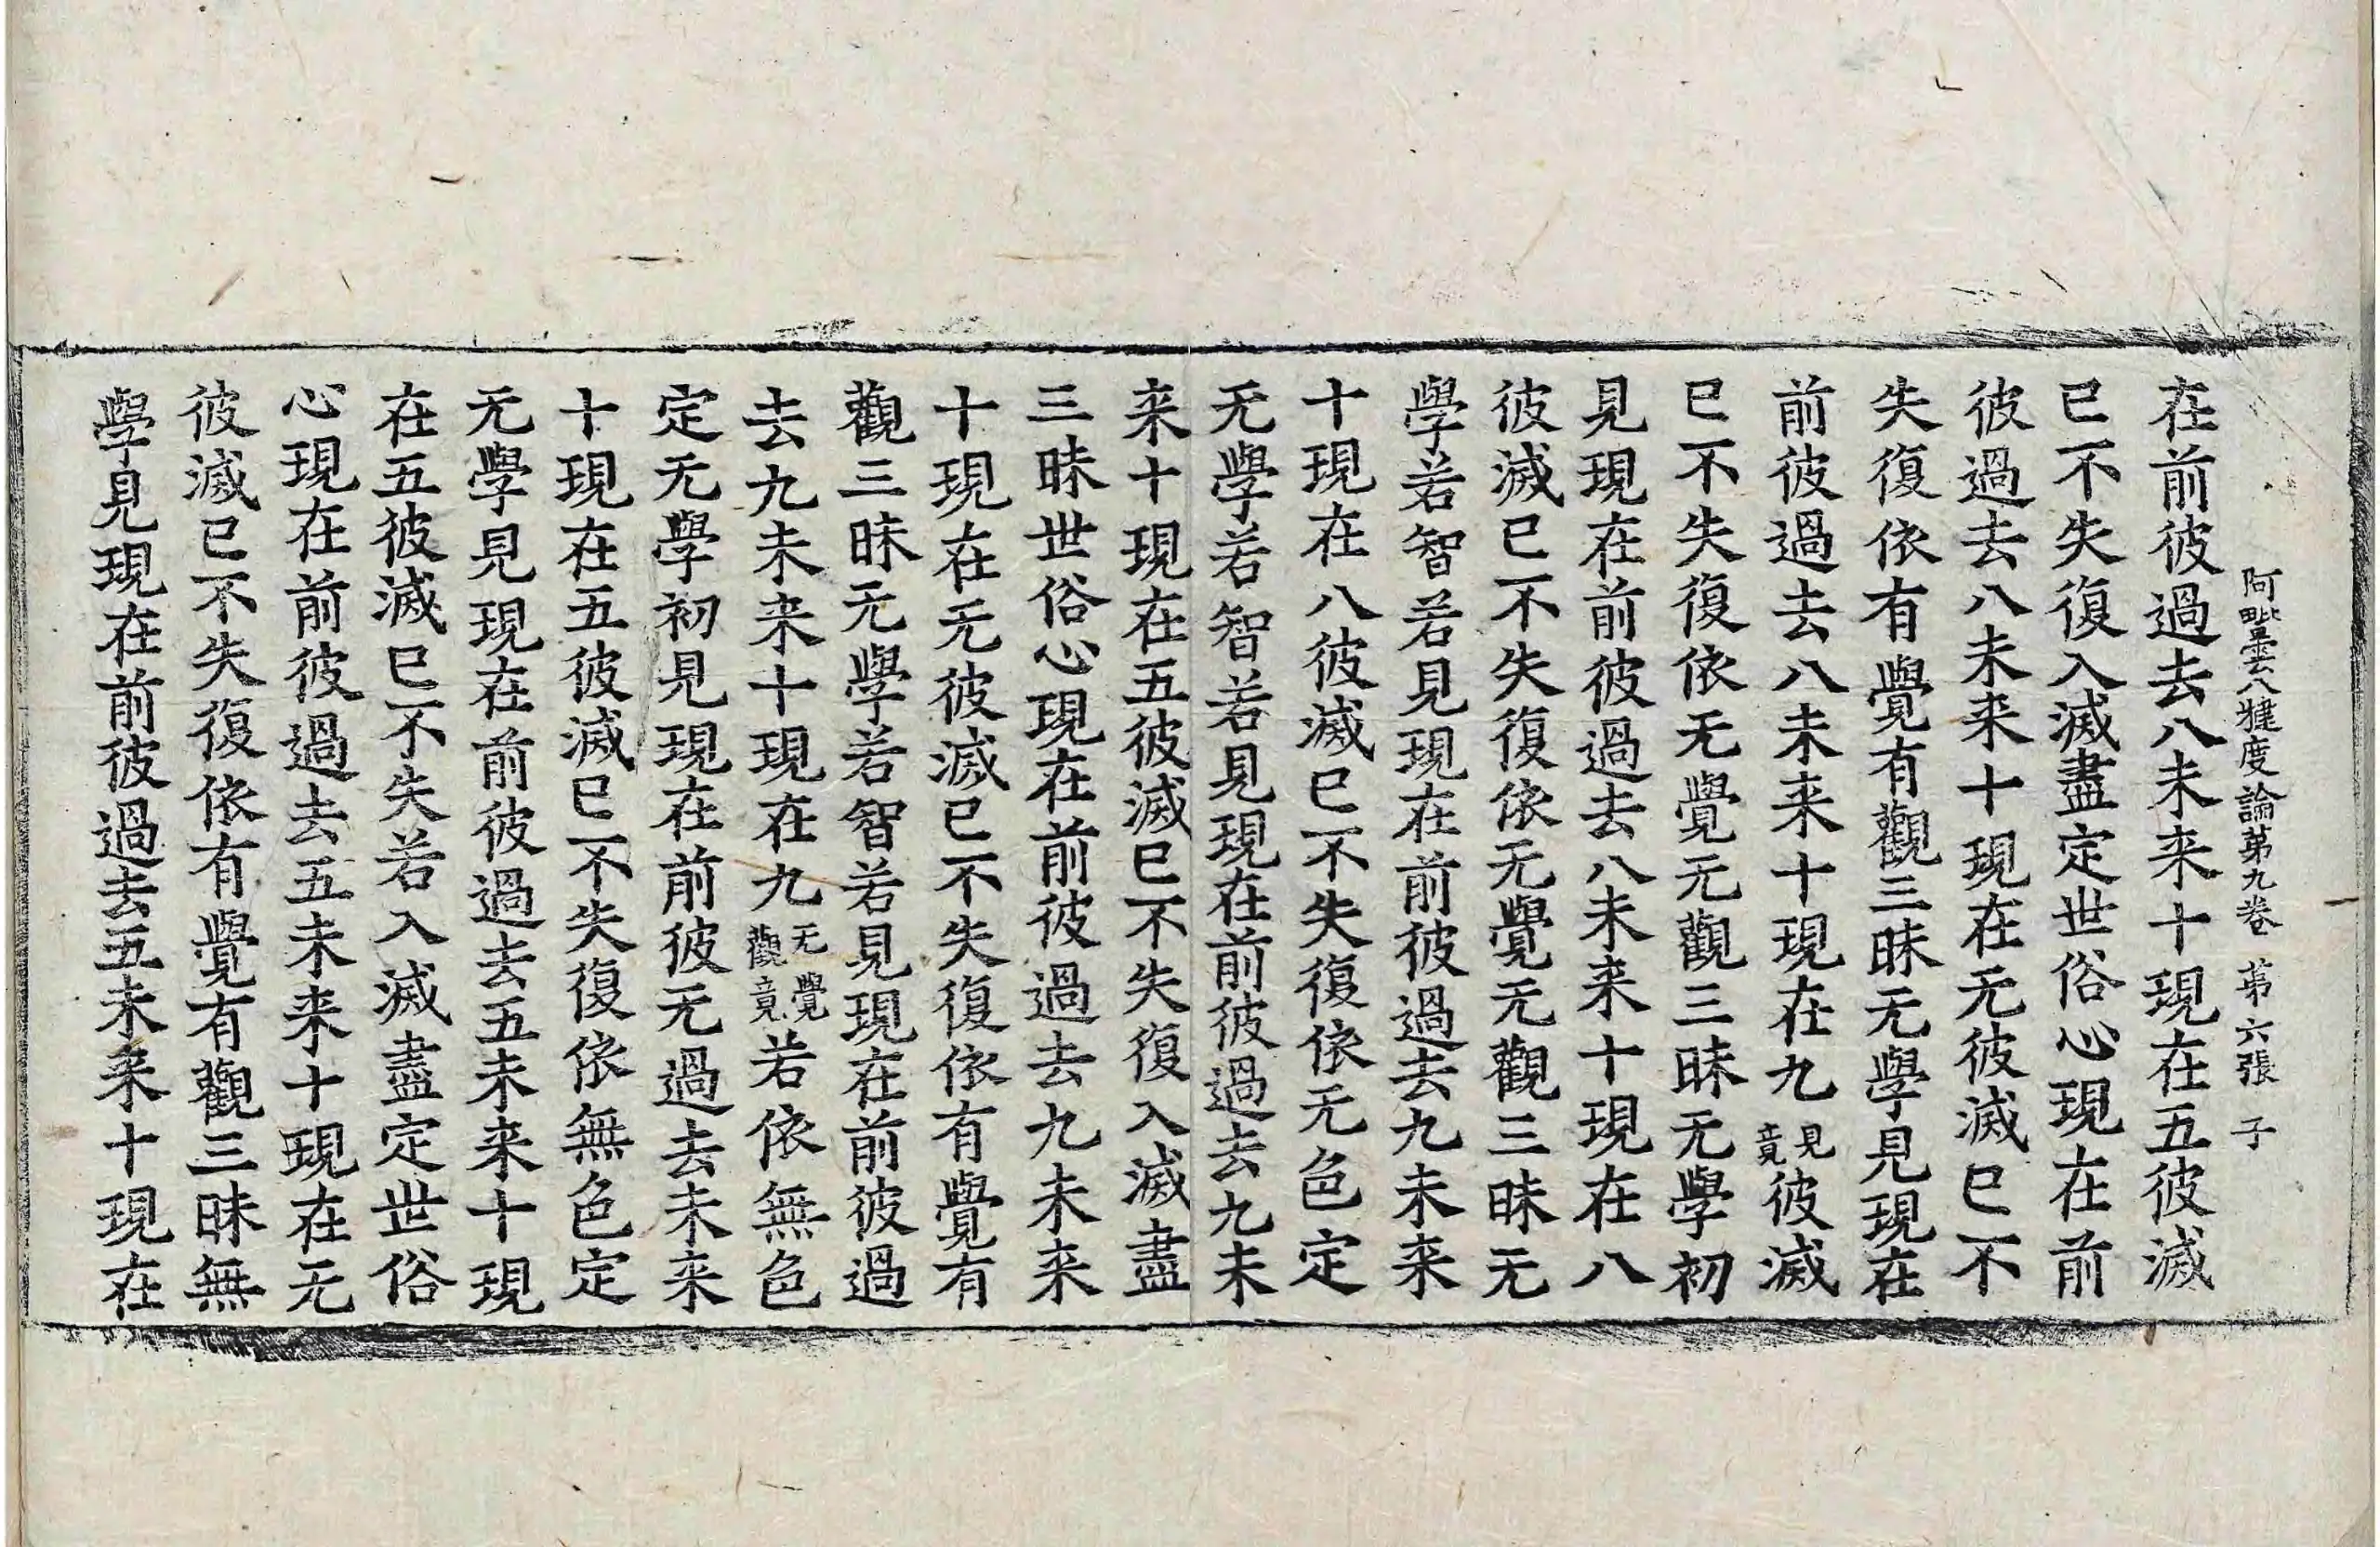 阿毗曇八犍度論第九卷 第六張 子
在前彼過去八未来十現在五彼滅
已不失復入滅盡定世俗心現在前
彼過去八未来十現在无彼滅已不
失復依有覺有觀三昧无學見現在
前彼過去八未来十現在九見竟彼滅
已不失復依无覺无觀三昧无學初
見現在前彼過去八未来十現在八
彼滅已不失復依无覺无觀三昧无
學若智若見現在前彼過去九未来
十現在八彼滅已不失復依无色定
无學若智若見現在前彼過去九未
来十現在五彼滅已不失復入滅盡
三昧世俗心現在前彼過去九未来
十現在无彼滅已不失復依有覺有
觀三昧无學若智若見現在前彼過
去九未来十現在九无覺觀竟若依無色
定无學初見現在前彼无過去未来
十現在五彼滅已不失復依無色定
无學見現在前彼過去五未来十現
在五彼滅已不失若入滅盡定世俗
心現在前彼過去五未来十現在无
彼滅已不失復依有覺有觀三昧無
學見現在前彼過去五未来十現在